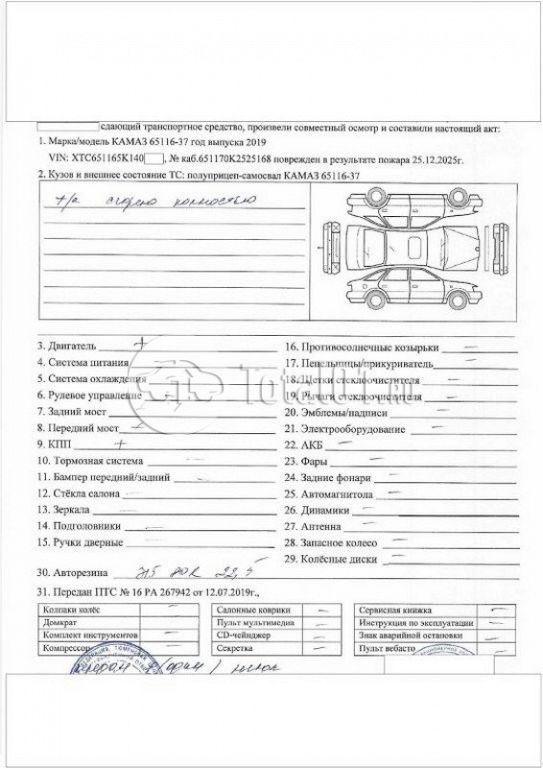 сдающий транспортное средство, произвели совместный осмотр и составили настоящий акт:
1. Марка/модель КАМАЗ 65116-37 год выпуска 2019
VIN: XTC651165K140 , № каб.651170K2525168 поврежден в результате пожара 25.12.2025г.
2. Кузов и внешнее состояние ТС: полуприцеп-самосвал КАМАЗ 65116-37
т/с сгорело полностью
3. Двигатель +
4. Система питания
5. Система охлаждения
6. Рулевое управление –
7. Задний мост +
8. Передний мост +
9. КПП +
10. Тормозная система –
11. Бампер передний/задний –
12. Стёкла салона –
13. Зеркала –
14. Подголовники –
15. Ручки дверные –
16. Противосолнечные козырьки –
17. Пепельницы/прикуриватель –
18. Щетки стеклоочистителя –
19. Рычаги стеклоочистителя –
20. Эмблемы/надписи –
21. Электрооборудование –
22. АКБ –
23. Фары –
24. Задние фонари –
25. Автомагнитола –
26. Динамики –
27. Антенна –
28. Запасное колесо –
29. Колёсные диски –
30. Авторезина 315 80R 22,5
31. Передан ПТС № 16 РА 267942 от 12.07.2019г.,
Колпаки колёс – Салонные коврики – Сервисная книжка –
Домкрат Пульт мультимедиа – Инструкция по эксплуатации –
Комплект инструментов – CD-чейнджер – Знак аварийной остановки –
Компрессор – Секретка – Пульт вебасто –
(один) ключ